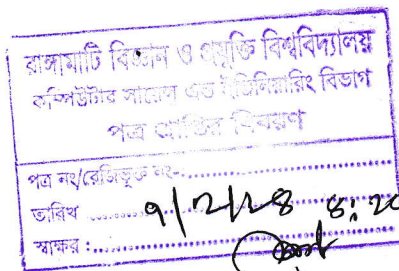 রাঙ্গামাটি বিজ্ঞান ও প্রযুক্তি বিশ্ববিদ্যালয়
কম্পিউটার সায়েন্স এন্ড ইঞ্জিনিয়ারিং বিভাগ
পত্র প্রাপ্তির বিবরণ
পত্র নং/রেজিভুক্ত নং-
তারিখ
স্বাক্ষর :